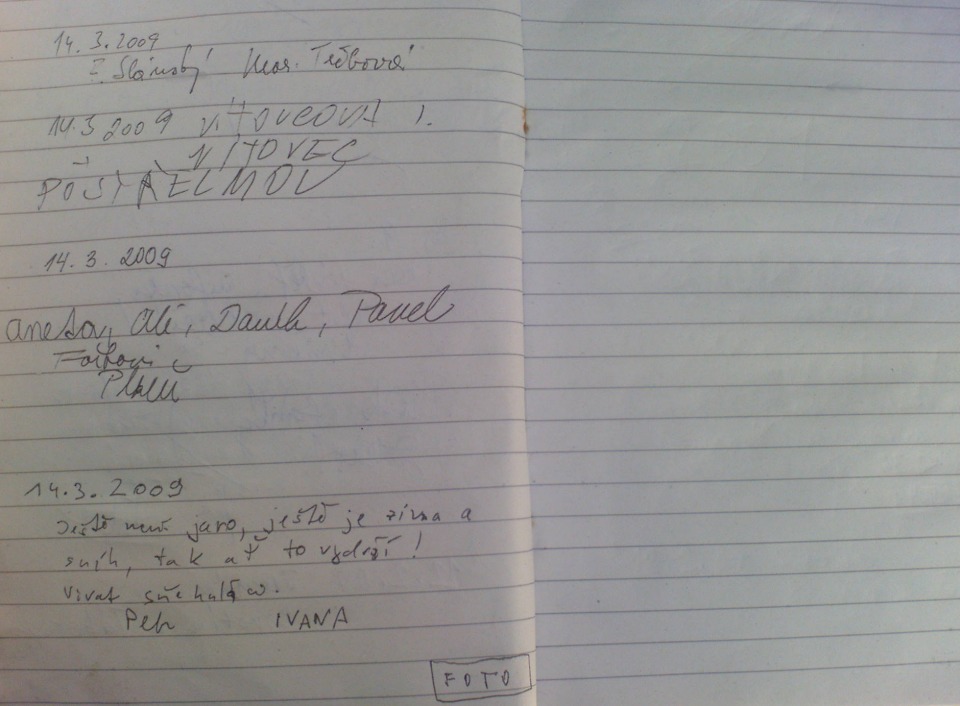 14. 3. 2009
Slánský Mor. Třebová
14.3 2009 VÍTOVCOVÁ J.
VÍTOVEC
POSTŘELMOV
14. 3. 2009
Pavel
Plzeň
14.3. 2009
Ještě není jaro, ještě je zima a
sníh, tak ať to vydrží!
Vivat sněhuláci.
Petr IVANA
FOTO